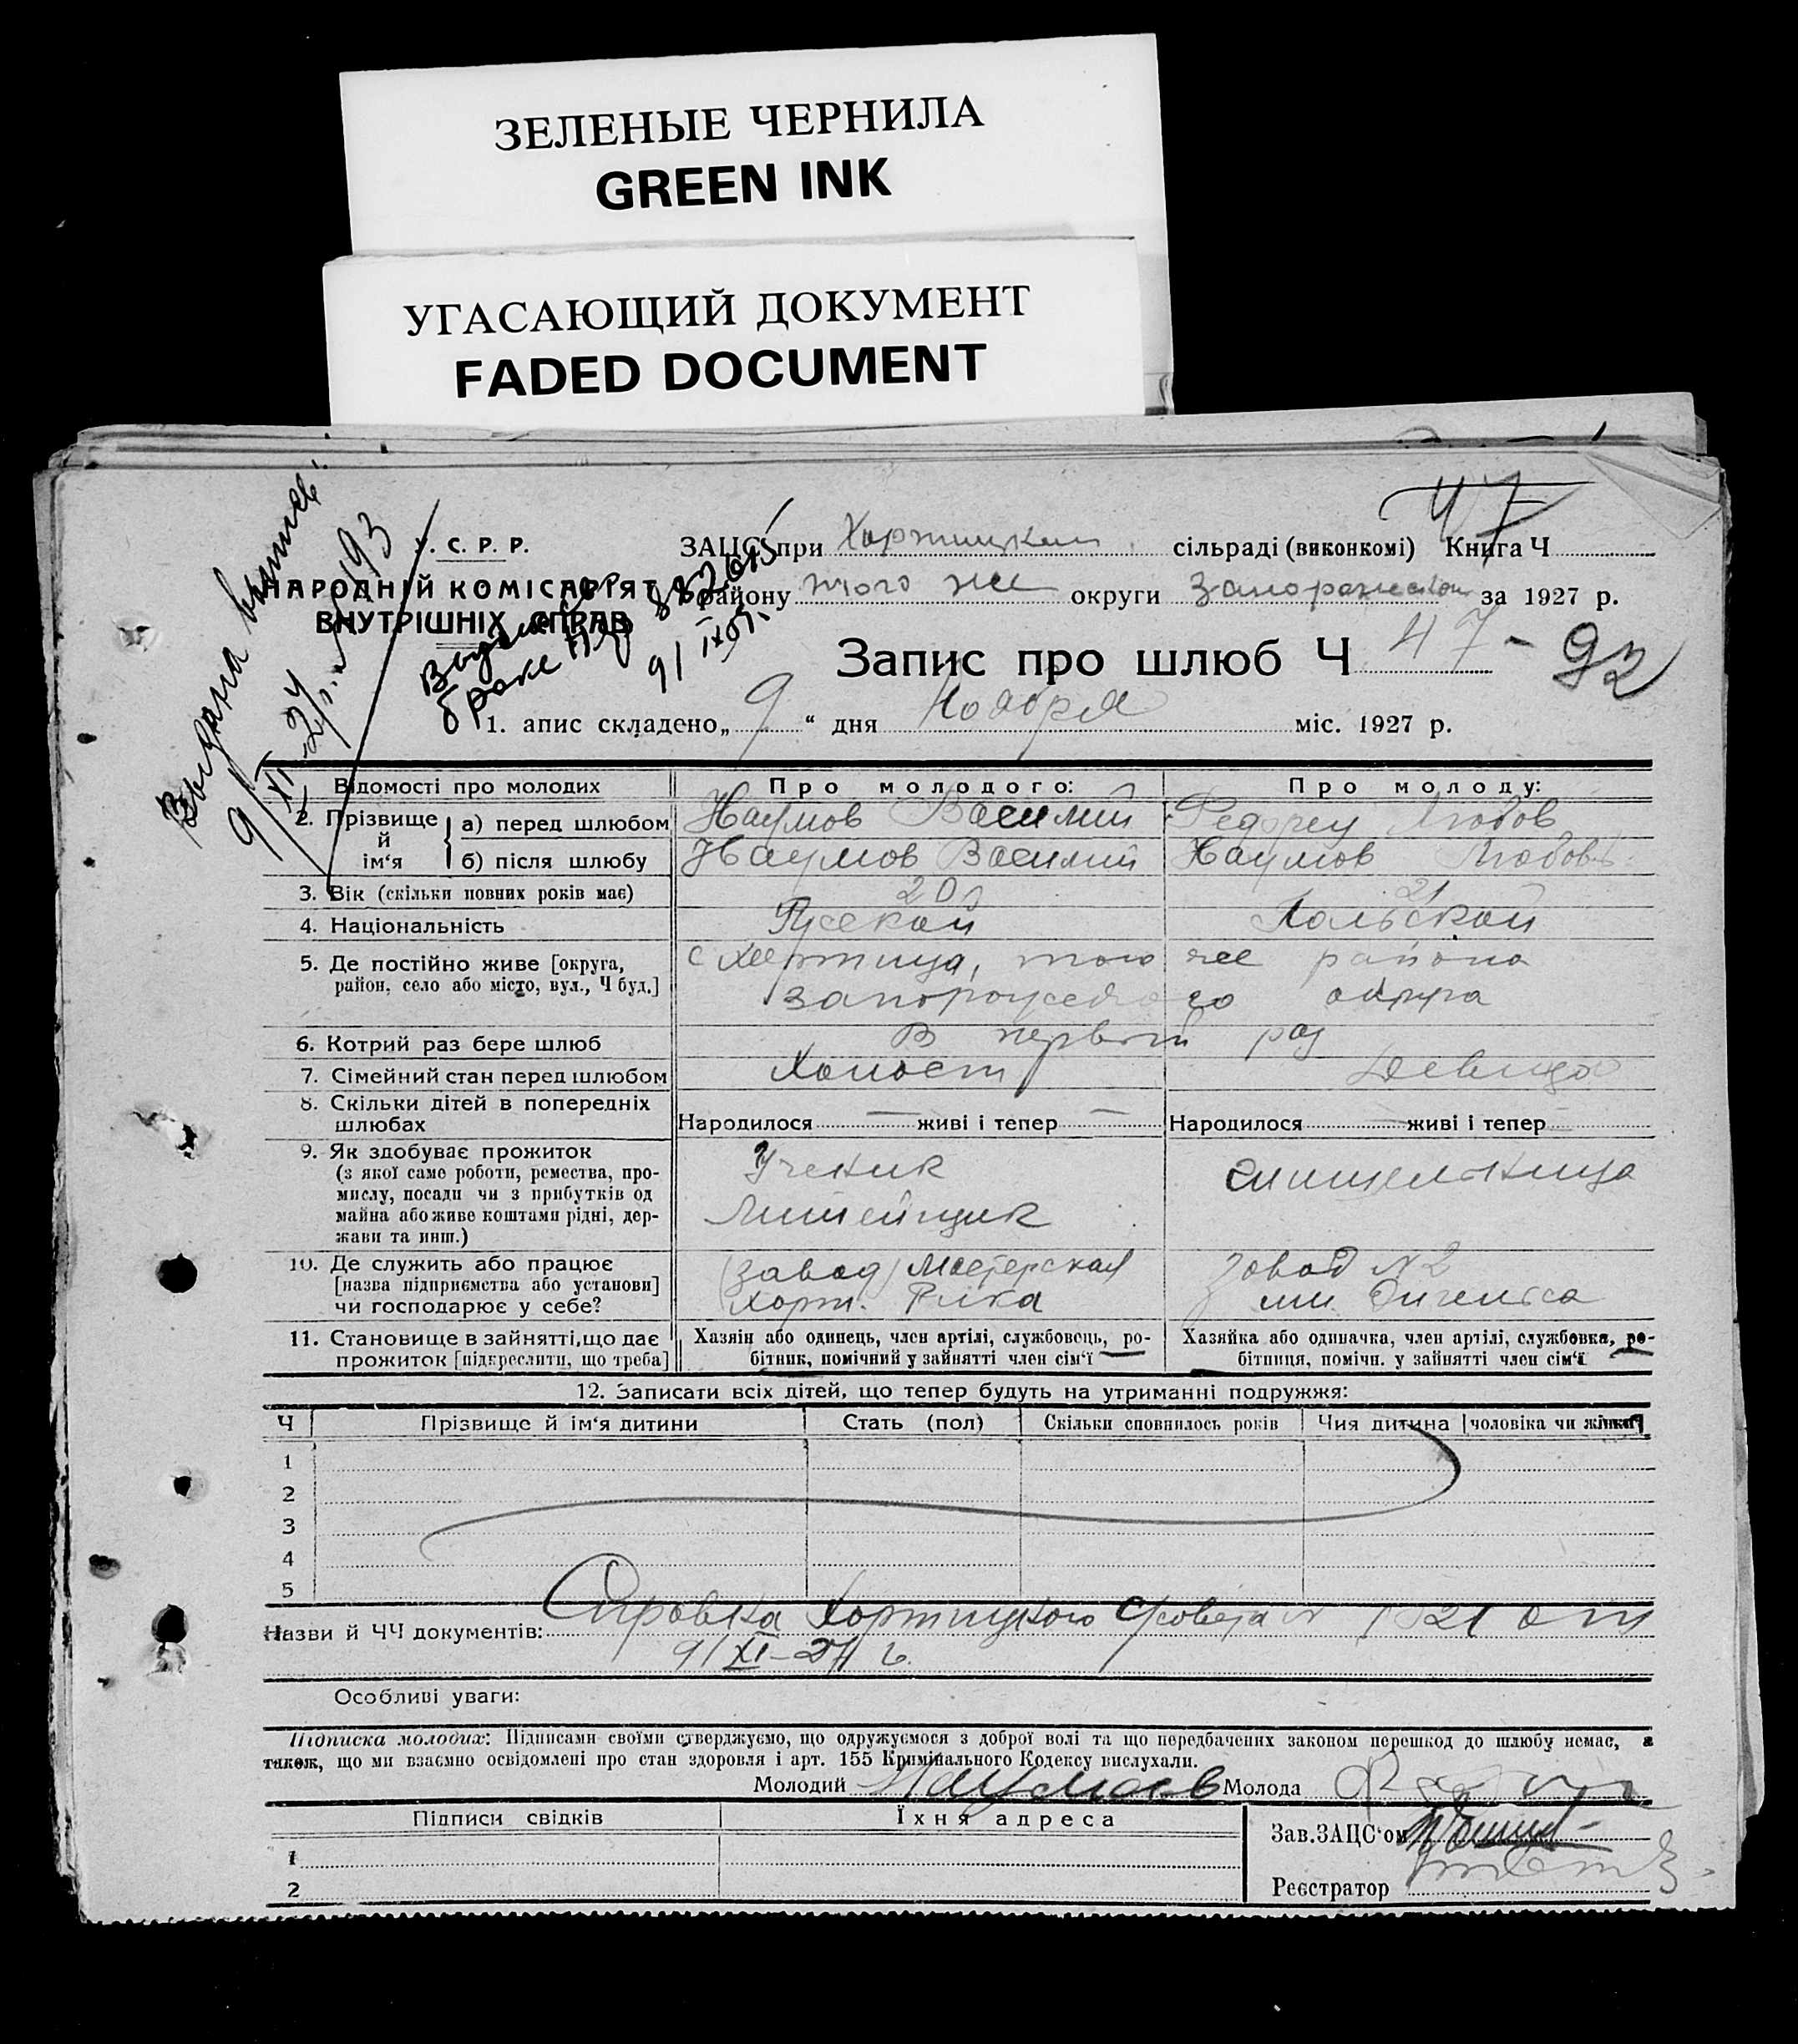 ЗЕЛЕНЫЕ ЧЕРНИЛА
GREEN INK
УГАСАЮЩИЙ ДОКУМЕНТ
FADED DOCUMENT
47
С. Р. Р.
НАРОДНІЙ КОМІСАРІЯТ
ВНУТРІШНІХ СПРАВ
Выдана
9/XI-27г. № 193
ЗАЦС при Хортицком сільраді (виконкомі) Книга Ч
району того же округи Запорожском за 1927 р.
браке
9/IX
Запис про шлюб Ч 47 - 92
1. апис складено „ 9 “ дня Ноября міс. 1927 р.
Відомості про молодих Про молодого: Про молоду:
2. Прізвище й ім‘я а) перед шлюбом Наумов Василий Любов
б) після шлюбу Наумов Василий Наумов Любов
3. Вік (скільки повних років має) 20 21
4. Національність Русской Польской
5. Де постійно живе [округа, с Хортица, того же района
район, село або місто, вул., Ч буд.] Запорожского округа
6. Котрий раз бере шлюб В первый раз
7. Сімейний стан перед шлюбом Холост Девица
8. Скільки дітей в попередніх
шлюбах Народилося — живі і тепер — Народилося — живі і тепер
9. Як здобуває прожиток
(з якої саме роботи, ремества, про-
мислу, посади чи з прибутків од
майна або живе коштами рідні, дер-
жави та инш.)
Ученик
Литейщик
10. Де служить або працює (завод) Мастерская Завод № 2
[назва підприємства або установи] Хорт. Рика им. Энгельса
чи господарює у себе?
11. Становище в зайнятті, що дає Хазяін або одинець, член артілі, службовець, ро- Хазяйка або одиначка, член артілі, службовка, ро-
прожиток [підкреслити, що треба] бітник, помічний у зайнятті член сім‘ї бітниця, помічн. у зайнятті член сім‘ї
12. Записати всіх дітей, що тепер будуть на утриманні подружжя:
Ч Прізвище й ім‘я дитини Стать (пол) Скільки сповнилось років Чия дитина чоловіка чи жінки
1
2
3
4
5
Назви й ЧЧ документів: Справка Хортицкого с/совета № 1821 от
9/XI-27 г.
Особливі уваги:
Підписка молодих: Підписами своїми стверджуємо, що одружуємося з доброї волі та що передбачених законом перешкод до шлюбу немає, а
також, що ми взаємно освідомлені про стан здоровля і арт. 155 Кримінального Кодексу вислухали.
Молодий Наумов Молода
Підписи свідків Їхня адреса
Зав. ЗАЦС‘ом
1
Реєстратор
2